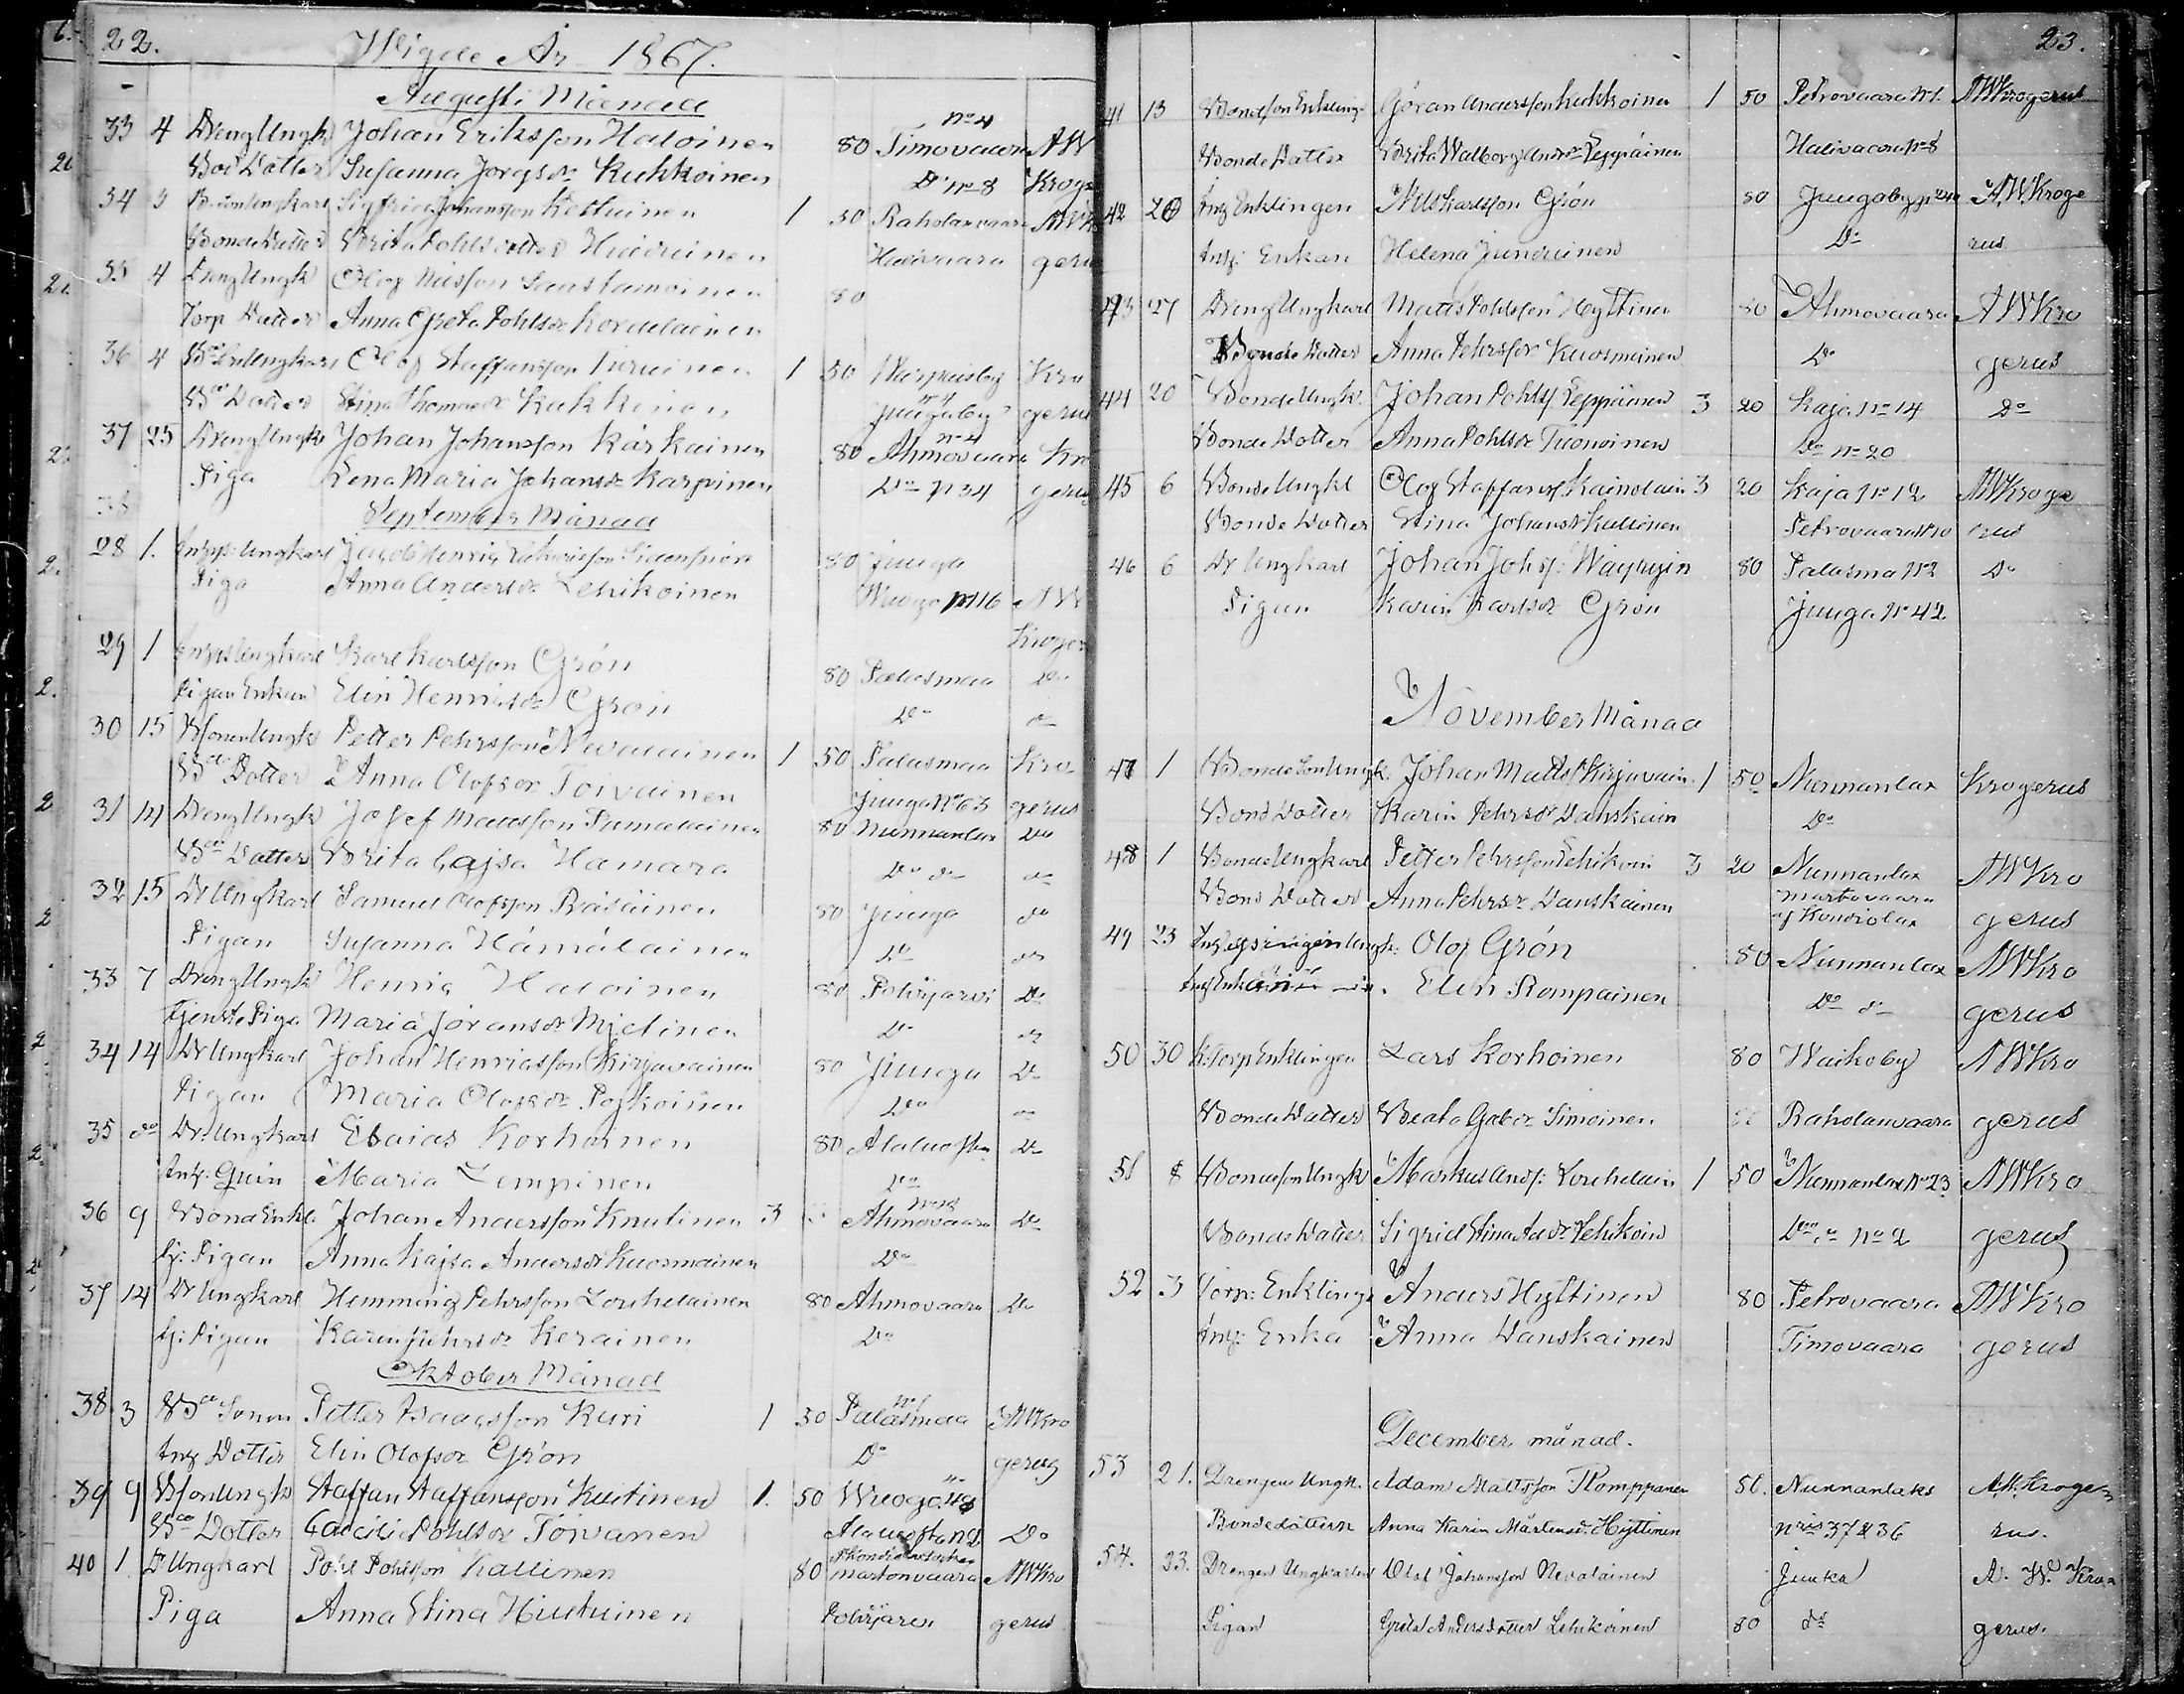 22.
Wigde År 1867.
Augusti Månad
33 4 Dreng Ungk Johan Eriksson Haloinen 80 Timovaara No 4 AW
Bod Dotter Susanna Jörgsdr Kuhkoinen Do No 8 Kroge
34 3 B. Son Ungkarl Sigfrid Johansson Kettuinen 1 50 Raholanvaara AWK
Bonde Dotter Brita Pohlsdotter Huduinen Halivaara gerus
35 4 Dreng Ungk Olof Nilsson Saastamoinen 80
Torp Dotter Anna Greta Pohlsdr Kordelainen
36 4 Bde Son Ungkarl Olof Staffansson Turuinen 1 50 Warpaisby Kro
Bde Dotter Stina Thomasdr Kukkonen Juugaby gerus
37 25 Dreng Ungk Johan Johansson Kärkainen 80 Ahmovaara No 4 Kro
Piga Lena Maria Johansdr Karpinen Do No 34 gerus
38
September Månad
28 1. Inhys: Ungkarl Jacob Henric 80 Juuga
Piga Anna Andersdr Lehikoinen Wuogo No 16 AW
Kroger
29 1 Inhys Ungkarl Karl Karlsson Grön 80 Palasmaa Do
Pigan Enkan Elin Henricsdr Grön Do do
30 15 B Sonen Ungk Petter Pehrsson Nevalainen 1 50 Palasmaa Kro
Bde Dotter Anna Olofsdr Toivainen Juuga No 63 gerus
31 14 Dreng Ungk Josef Matsson Pumalainen 80 Nunnanlax Do
Bde Dotter Brita Cajsa Hamara Do do do
32 15 Dr Ungkarl Samuel Olofsson Räsäinen 80 Juuga do
Pigan Susanna Hämäläinen Do do
33 7 Dreng Ungk Henric Haloinen 80 Polvijarvi Do
tjenste Piga Maria Joransdr Mietinen Do do
34 14 Dr Ungkarl Johan Henricsson Kirjavainen 80 Juuga Do
Pigan Maria Olofsdr Poskoinen Do do
35 do Dr. Ungkarl Esaias Korhoinen 80 Alaluosta Do
Inh: Qvin Maria Lempinen Do
36 9 Bond Enkl. Johan Andersson Knutinen 3 Ahmovaara No 18 Do
tj: Pigan Anna Kajsa Andersdr Kuosmainen Do
37 14 Dr Ungkarl Hemming Pehrsson Lorchelainen 80 Ahmovaara Do
tj: Pigan Karin Pehrsdr Kerainen Do
Oktober Månad
38 3 Bde Sonen Petter Isaacsson Kuri 1 50 Palasmaa No 1 AWKro
Inh Dotter Elin Olofsdr Grön Do gerus
39 9 B Son Ungk Staffan Staffansson Kuitinen 1. 50 Wuogo AW
Bde Dotter Caecilie Pohlsdr Toivanen Alaluosta No 2 Do
40 1. Dr Ungkarl Pohl Pohlsson Kallinen 80 Martonvaara AWKro
Piga Anna Stina Hirtuinen Polvijarvi gerus
23.
41 13 Bondeson Enkling Göran Andersson Kuhkoinen 1 50 Petrovaara No 1. AWKrogerus
Bonde Dotter Brita Walborg Andrsdr Leppäinen Halivaara No 8
42 20 Inh Enklingen Nils Karlsson Grön 80 Juugaby AWKroge
Inh: Enkan Helena Junduinen Do rus
43 27 Dreng Ungkarl Matts Pohlsson Hyttinen 80 Ahmovaara AWKro
Bonde Dotter Anna Pehrsdr Kuosmainen Do gerus
44 20 Bonde Ungk. Johan Pohlss Leppäinen 3 20 Kaja No 14 Do
Bonde Dotter Anna Pohlsdr Tuonoinen Do No 20
45 6 Bonde Ungkl Olof Staffanss Kainolain 3 20 Kaja No 12 AWKroge
Bonde Dotter Stina Johansdr Kallinen Petrovaara No 10 rus
46 6 Dr Ungkarl Johan Johss: Wäyryin 80 Palasma No 2 Do
Pigan Karin Karlsdr Grön Juuga No 42
November Månad
47 1 Bonde Son Ungk. Johan Matts Kirjavain. 1 50 Nunnanlax Krogerus
Bond Dotter Karin Pehrsdr Danskain Do
48 1 Bonde Ungkarl Petter Pehrsson Lehikoin 3 20 Nunnanlax AWKro
Bond Dotter Anna Pehrsdr Danskainen Martovaara af Kondiolax gerus
49 23 Olof Grön 80 Nunnanlax AWKro
Inh Enkan Elin Rompainen Do do gerus
50 30 K: Torp Enklingen Lars Korhoinen 80 Waikoby AWKro
Bonde Dotter Beata Gabdr Simoinen Raholanvaara gerus
51 8 Bondeson Ungk Markus Ands: Lorchelain 1 50 Nunnanlax No 23 AWKro
Bonde Dotter Sigrid Stina Addr Lehikoin Do do No 2 gerus
52 3 Torp: Enkling Anders Hyttinen 80 Petrovaara AWKro
Inh: Enka Anna Danskainen Timovaara gerus
December månad.
53 21. Drengen Ungk. Adam Mattsson Romppanen 80. Nunnanlaks A.W. Kroge
Bondedottern Anna Karin Mårtensdr Hyttinen Nris 37 & 36 rus.
54. 23. Drengen Ungkarlen Olof Johansson Nevalainen Juuka A. W. Kro
Pigan Greta Andersdotter Lehikoinen 80 do gerus.